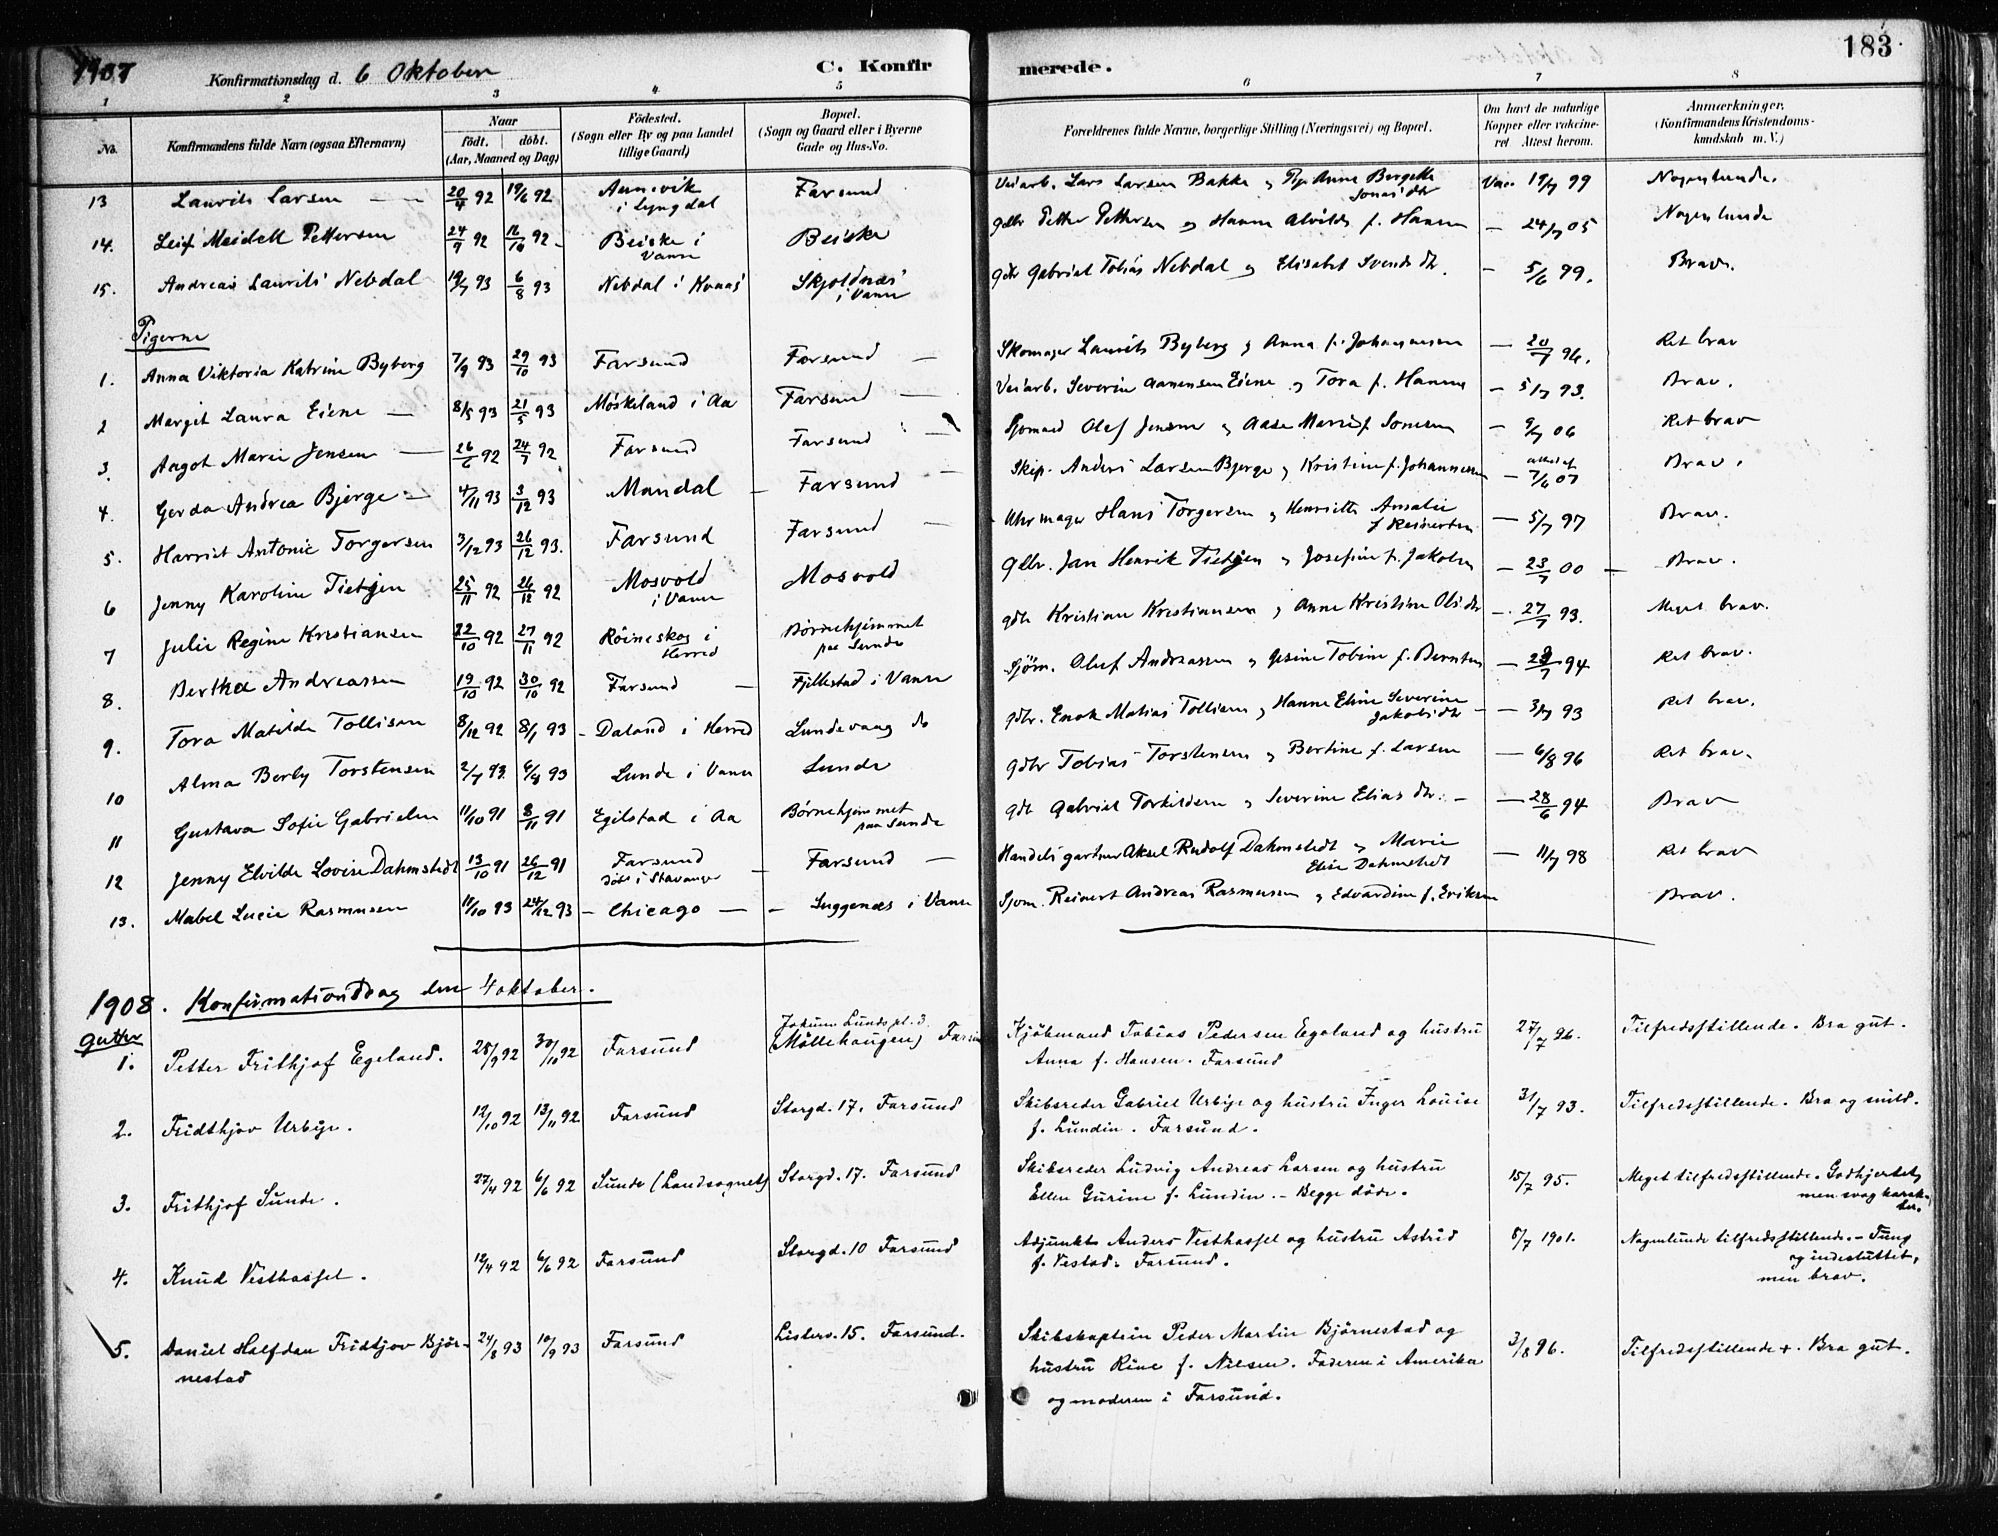 1907 Konfirmationsdag d. 6 Oktober C. Konfirmerede. 183
1 2 3 4 5 6 7 8
No. Konfirmandens fulde Navn (ogsaa Efternavn) Naar født. døbt. (Aar, Maaned og Dag) Fødested. (Sogn eller By og paa Landet tillige Gaard) Bopæl. (Sogn og Gaard eller i Byerne Gade og Hus-No. Forældrenes fulde Navne, borgerlige Stilling (Næringsvei) og Bopæl. Om havt de naturlige Kopper eller vakcineret. Attest herom. Anmærkninger. (Konfirmandens Kristendomskundskab m. V.)
13 Laurits Larsen 20/4 92 19/6 92 Aunevik i Lyngdal Farsund Veiarb. Lars Larsen Bakke og Anna Bergette Jonasdtr Vac. 19/7 99 Nogenlunde.
14. Leif Meidell Pettersen 24/9 92 16/10 92 Beiske i Vanse Beiske Gdbr Petter Pettersen og Hanna Alvilde f. Hansen 24/7 05 Nogenlunde
15. Andreas Laurits Nebdal 19/7 93 6/8 93 Nebdal i Kvaas Skjoldnæs i Vanse gdbr Gabriel Tobias Nebdal og Elisabet Svendsdtr. 5/6 99. Brav.
Pigerne
1. Anna Viktoria Katrine Byberg 7/9 93 29/10 93 Farsund Farsund Skomager Laurits Byberg og Anna f. Johannesen 20/7 96. Ret brav
2 Margit Laura Eiene 8/5 93 21/5 93 Møskeland i Aa Farsund Veiarb. Severin Aanensen Eiene og Tora f. Hansen 5/7 93. Brav.
3. Aagot Marie Jensen 26/6 92 24/7 92 Farsund Farsund Sjømand Olef Jensen og Aase Marie f. Sørensen 9/7 06 Ret brav
4. Gerda Andrea Bjerge 4/11 93 3/12 93 Mandal Farsund Skip. Anders Larsen Bjerge og Kristine f. Johannesen attest af 7/6 07 Brav.
5. Harriet Antonie Torgersen 3/12 93 26/12 93. Farsund Farsund Uhrmager Hans Torgersen og Henriette Amalie f Reinertsen 5/7 97 Brav.
6 Jenny Karoline Tietjen 25/11 92 26/12 92 Mosvold i Vanse Mosvold Gdbr. Jan Henrik Tietjen og Josefine f. Jakobsen 23/7 00 Brav.
7 Julie Regine Kristiansen 22/10 92 27/11 92 Røineskog i Herred Børnehjemmet paa Sunde gdbr Kristian Kristiansen og Anne Kristine Olsdtr 27/7 93. Meget brav.
8. Berthe Andreassen 19/10 92 30/10 92 Farsund Fjellestad i Vanse Sjøm. Olaf Andreassen og Gesine Tobine f. Berntsen 28/7 94 Ret brav.
9. Tora Matilde Tollisen 8/12 92 8/1 93 Daland i Herred Lundevaag do gdbr. Enok Matias Tollisen og Hanne Eline Severine Jakobsdtr 3/7 93 Ret brav.
10 Alma Berly Torstensen 2/7 93. 6/8 93 Lunde i Vanse Lunde gdbr Tobias Torstensen og Bertine f. Larsen 6/8 96 Ret brav.
11 Gustava Sofie Gabrielsen 11/10 91 8/11 91 Egilstad i Aa Børnehjemmet paa Sunde gdbr Gabriel Torkildsen og Severine Eliasdtr. 28/6 94 Brav
12 Jenny Elvilde Lovise Dahmstedt 13/10 91 26/12 91 Farsund døbt i Stavanger Farsund Handelsgartner Aksel Rudolf Dahmstedt og Marie Elise Dahmstedt 11/7 98 Ret brav
13. Mabel Lucie Rasmussen 11/10 93 24/12 93 Chicago Luggenæs i Vanse Sjøm. Reinert Andreas Rasmussen og Edvardine f. Eriksen Brav.
1908. Konfirmationsdag den 4 oktober.
Gutter
1. Petter Frithjof Egeland. 28/9 92 30/10 92 Farsund Jokum Lunds pl. 3. (Møllehaugen) Farsund Kjøbmand Tobias Pedersen Egeland og hustru
Anna f. Hansen. Farsund 27/7 96. Tilfredsstillende. Bra gut.
2. Fridthjov Urbye. 12/10 92 13/11 92 Farsund Storgd. 17. Farsund Skibsreder Gabriel Urbye og hustru Inger Louise
f. Lundin. Farsund. 31/7 93. Tilfredsstillende. Bra og snild.
3. Frithjof Sunde. 27/4 92 6/6 92 Sunde (Landsognet) Storgd. 17. Farsund Skibsreder Ludvig Andreas Larsen og hustru
Ellen Gurine f. Lundin. - Begge døde. 15/7 95. Meget tilfredsstillende. Godhjertet
men svag karakter.
4. Knud Vesthassel. 12/4 92 6/6 92 Farsund Storgd. 10 Farsund Adjunkt Anders Vesthassel og hustru Astrid
f. Vestad. Farsund. 5/7 1901. Nogenlunde tilfredsstillende. - Tung
og indesluttet,
men brav.
5. Daniel Halfdan Fridtjov Bjørnestad 24/8 93 10/9 93 Farsund Listerv. 15. Farsund. Skibskaptein Peder Martin Bjørnestad og
hustru Rine f. Nilsen. Faderen i Amerika
og moderen i Farsund. 3/8 96. Tilfredsstillende +. Bra gut.